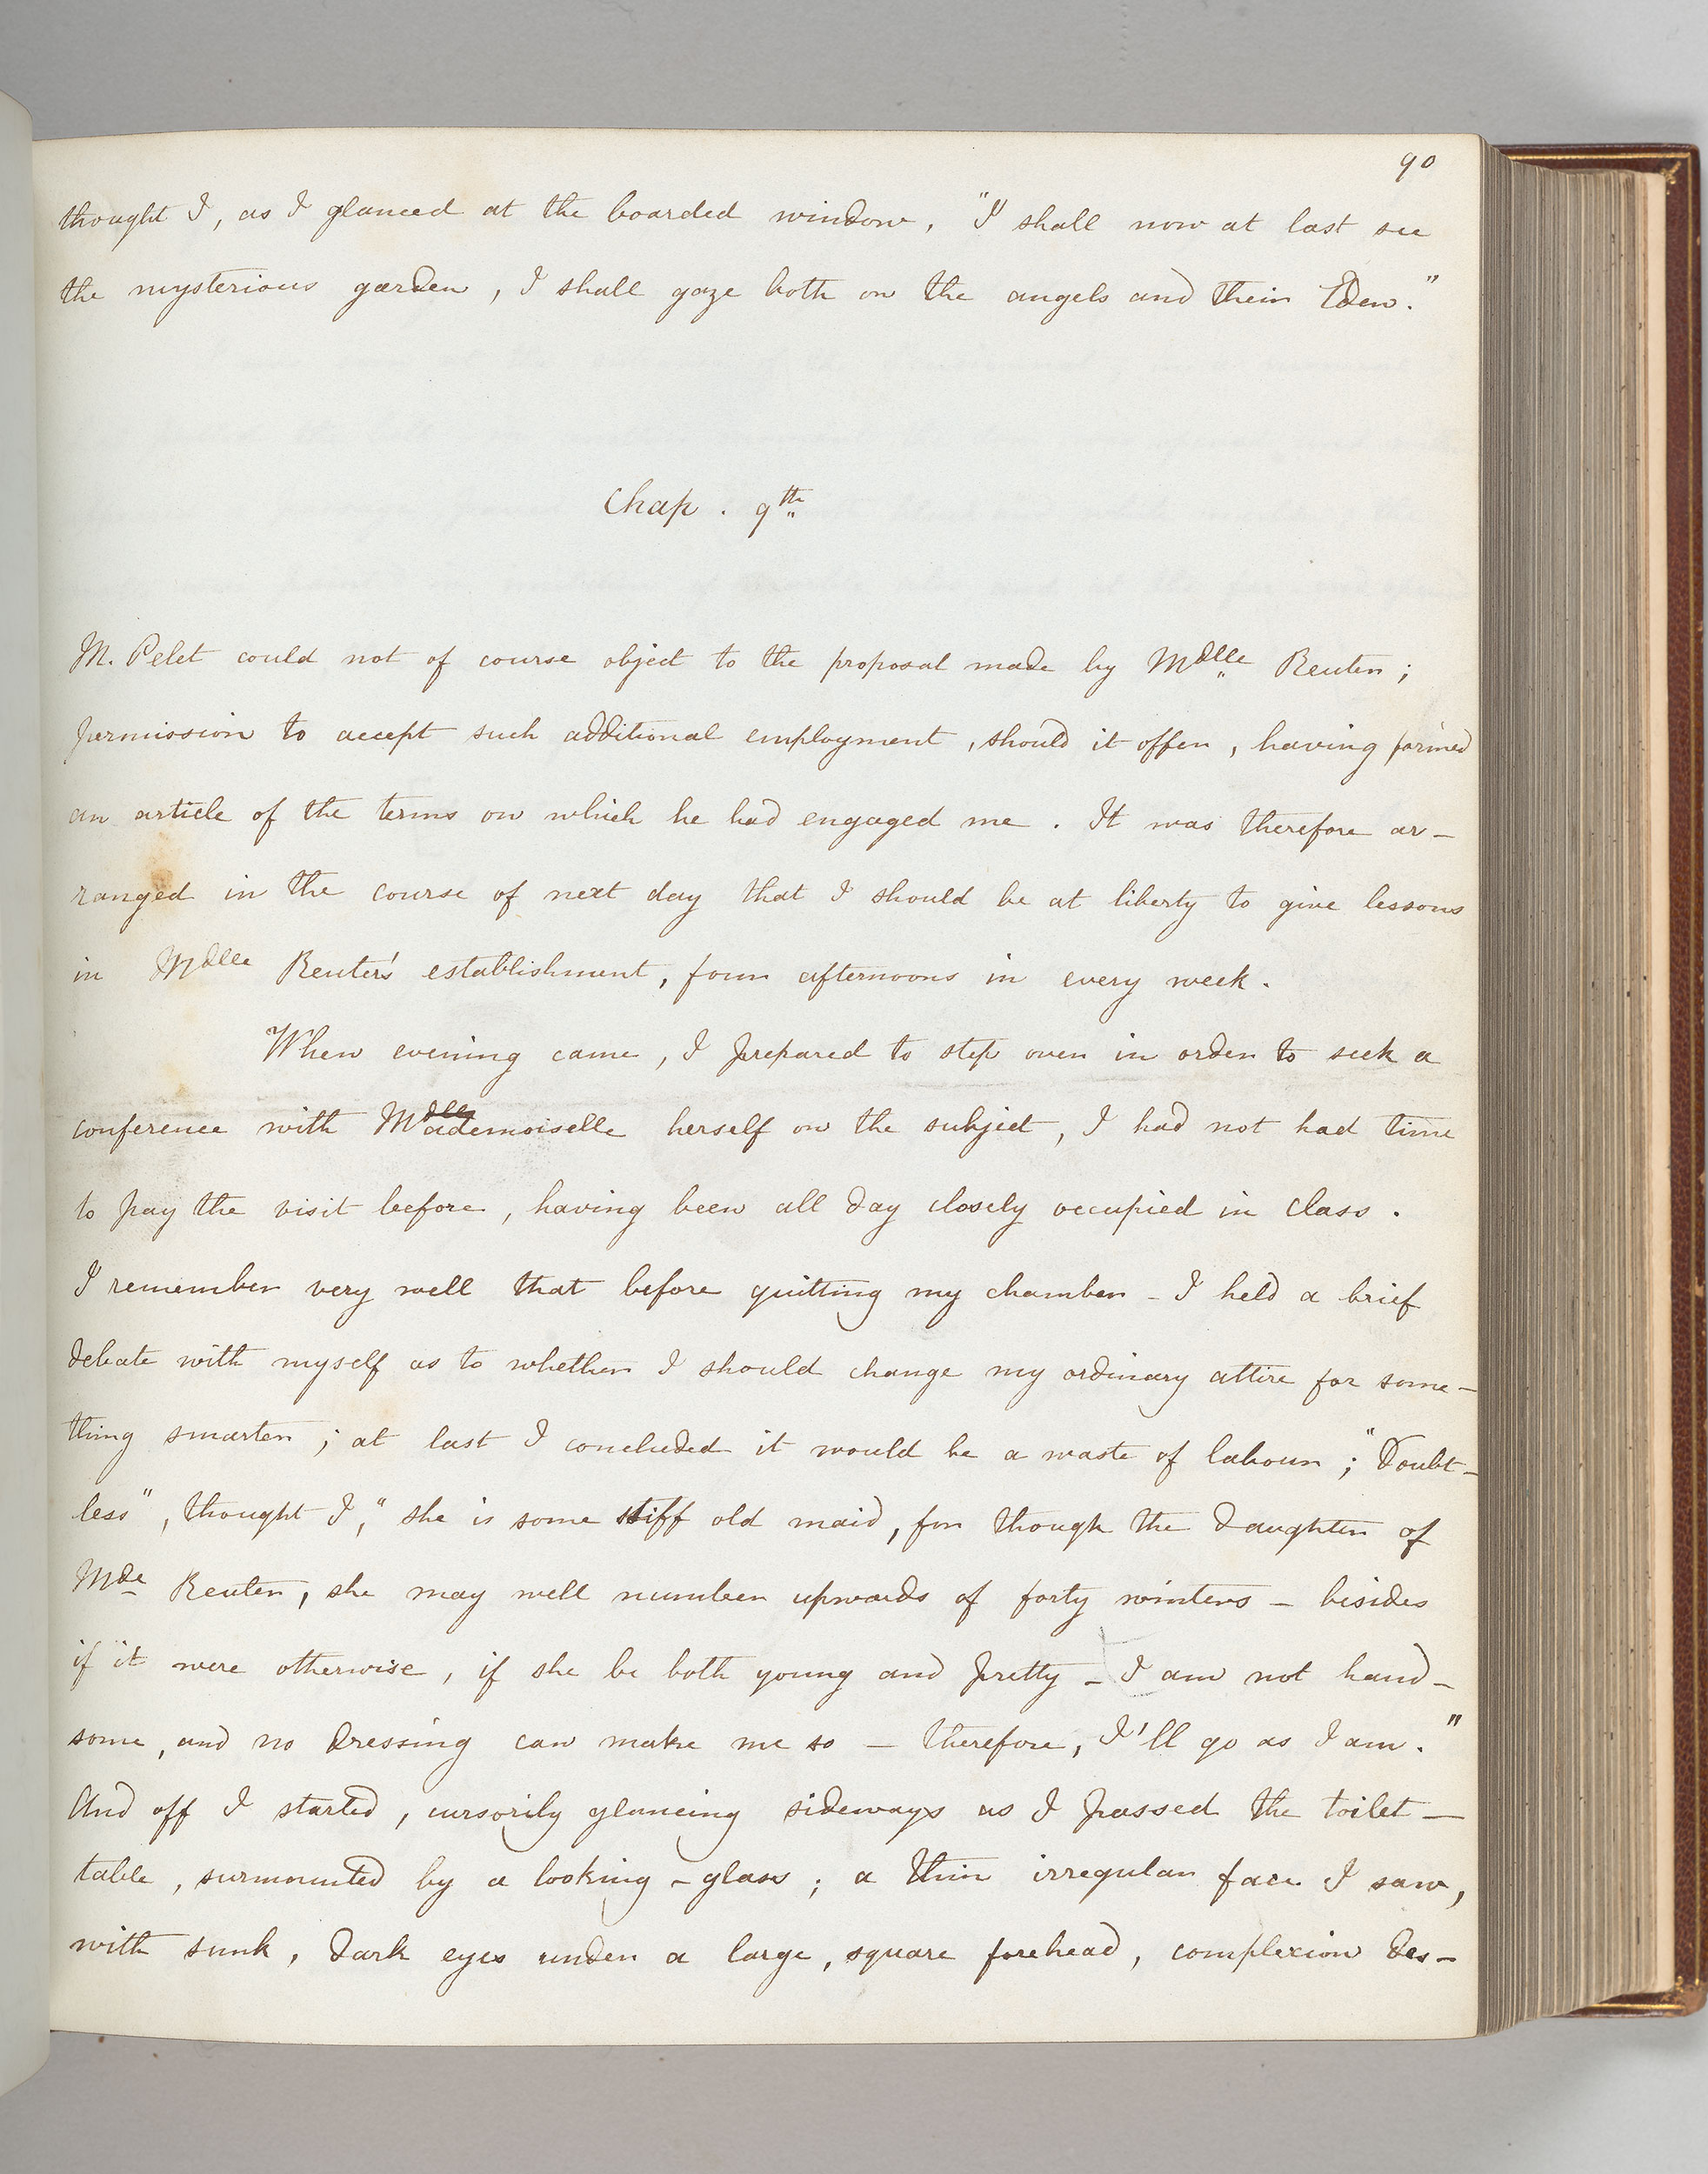 90
thought I, as I glanced at the boarded window, "I shall now at last see
the mysterious garden, I shall gaze both on the angels and their Eden."
Chap. 9th
M. Pelet could not of course object to the proposal made by Mdlle Reuter;
permission to accept such additional employment, should it offer, having formed
an article of the terms on which he had engaged me. It was therefore ar-
ranged in the course of next day that I should be at liberty to give lessons
in Mdlle Reuter's establishment, four afternoons in every week.
When evening came, I prepared to step over in order to seek a
conference with Mademoiselle herself on the subject, I had not had time
to pay the visit before, having been all day closely occupied in class.
I remember very well that before quitting my chamber - I held a brief
debate with myself as to whether I should change my ordinary attire for some-
thing smarter; at last I concluded it would be a waste of labour; "Doubt-
less", thought I, "she is some stiff old maid, for though the daughter of
Mde Reuter, she may well number upwards of forty winters - besides
if it were otherwise, if she be both young and pretty - I am not hand-
some, and no dressing can make me so - therefore, I'll go as I am."
And off I started, cursorily glancing sideways as I passed the toilet-
table, surmounted by a looking-glass; a thin irregular face I saw,
with sunk, dark eyes under a large, square forehead, complexion des-